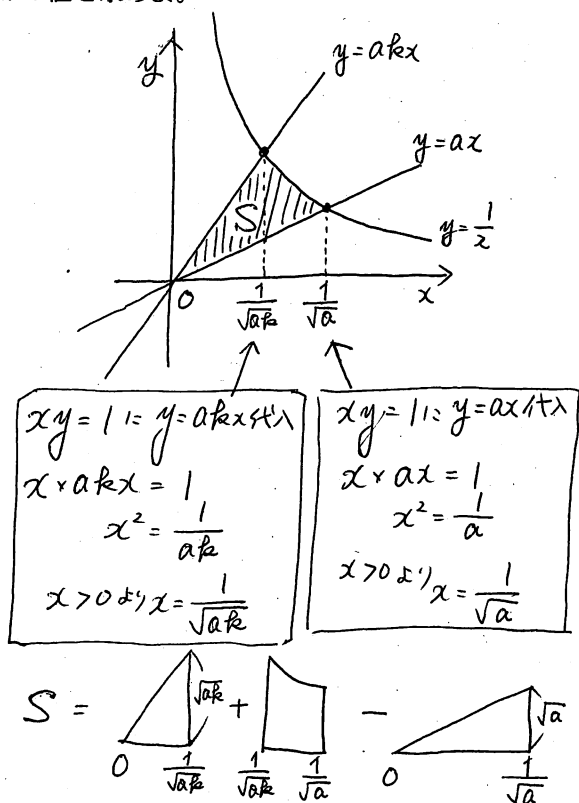 y
y=akx
y=ax
S
y=1/x
0
1/√ak
1/√a
x
xy=1に y=akx代入
x×akx=1
x²=1/ak
x>0より x=1/√ak
xy=1に y=ax代入
x×ax=1
x²=1/a
x>0より x=1/√a
S = + −
√ak
√a
0 1/√ak 1/√ak 1/√a 0 1/√a